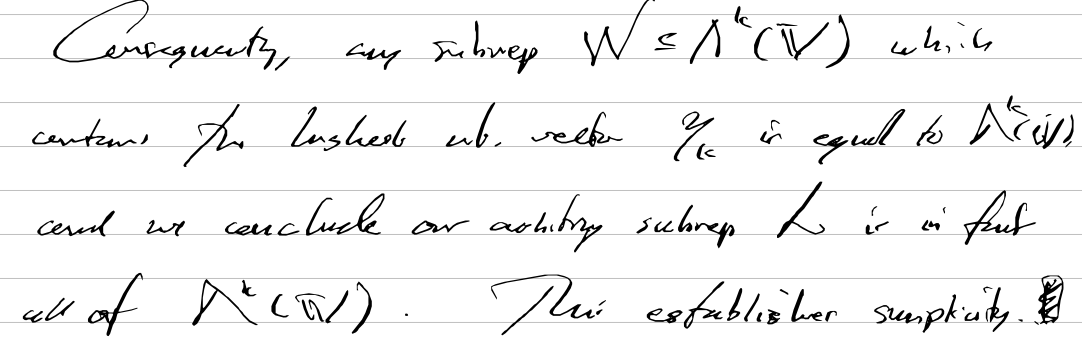 Consequently, any subrep W ⊆ Λ^k(𝕍) which
contains the highest wt. vector η_k is equal to Λ^k(𝕍),
and we conclude our arbitrary subrep L is in fact
all of Λ^k(𝕍). This establishes simplicity.